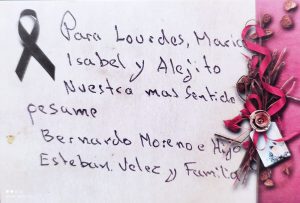 Para Lourdes, Maria
Isabel y Alejito
Nuestro mas sentido
pesame
Bernardo Moreno e Hijo
Esteban. Velez y Familia